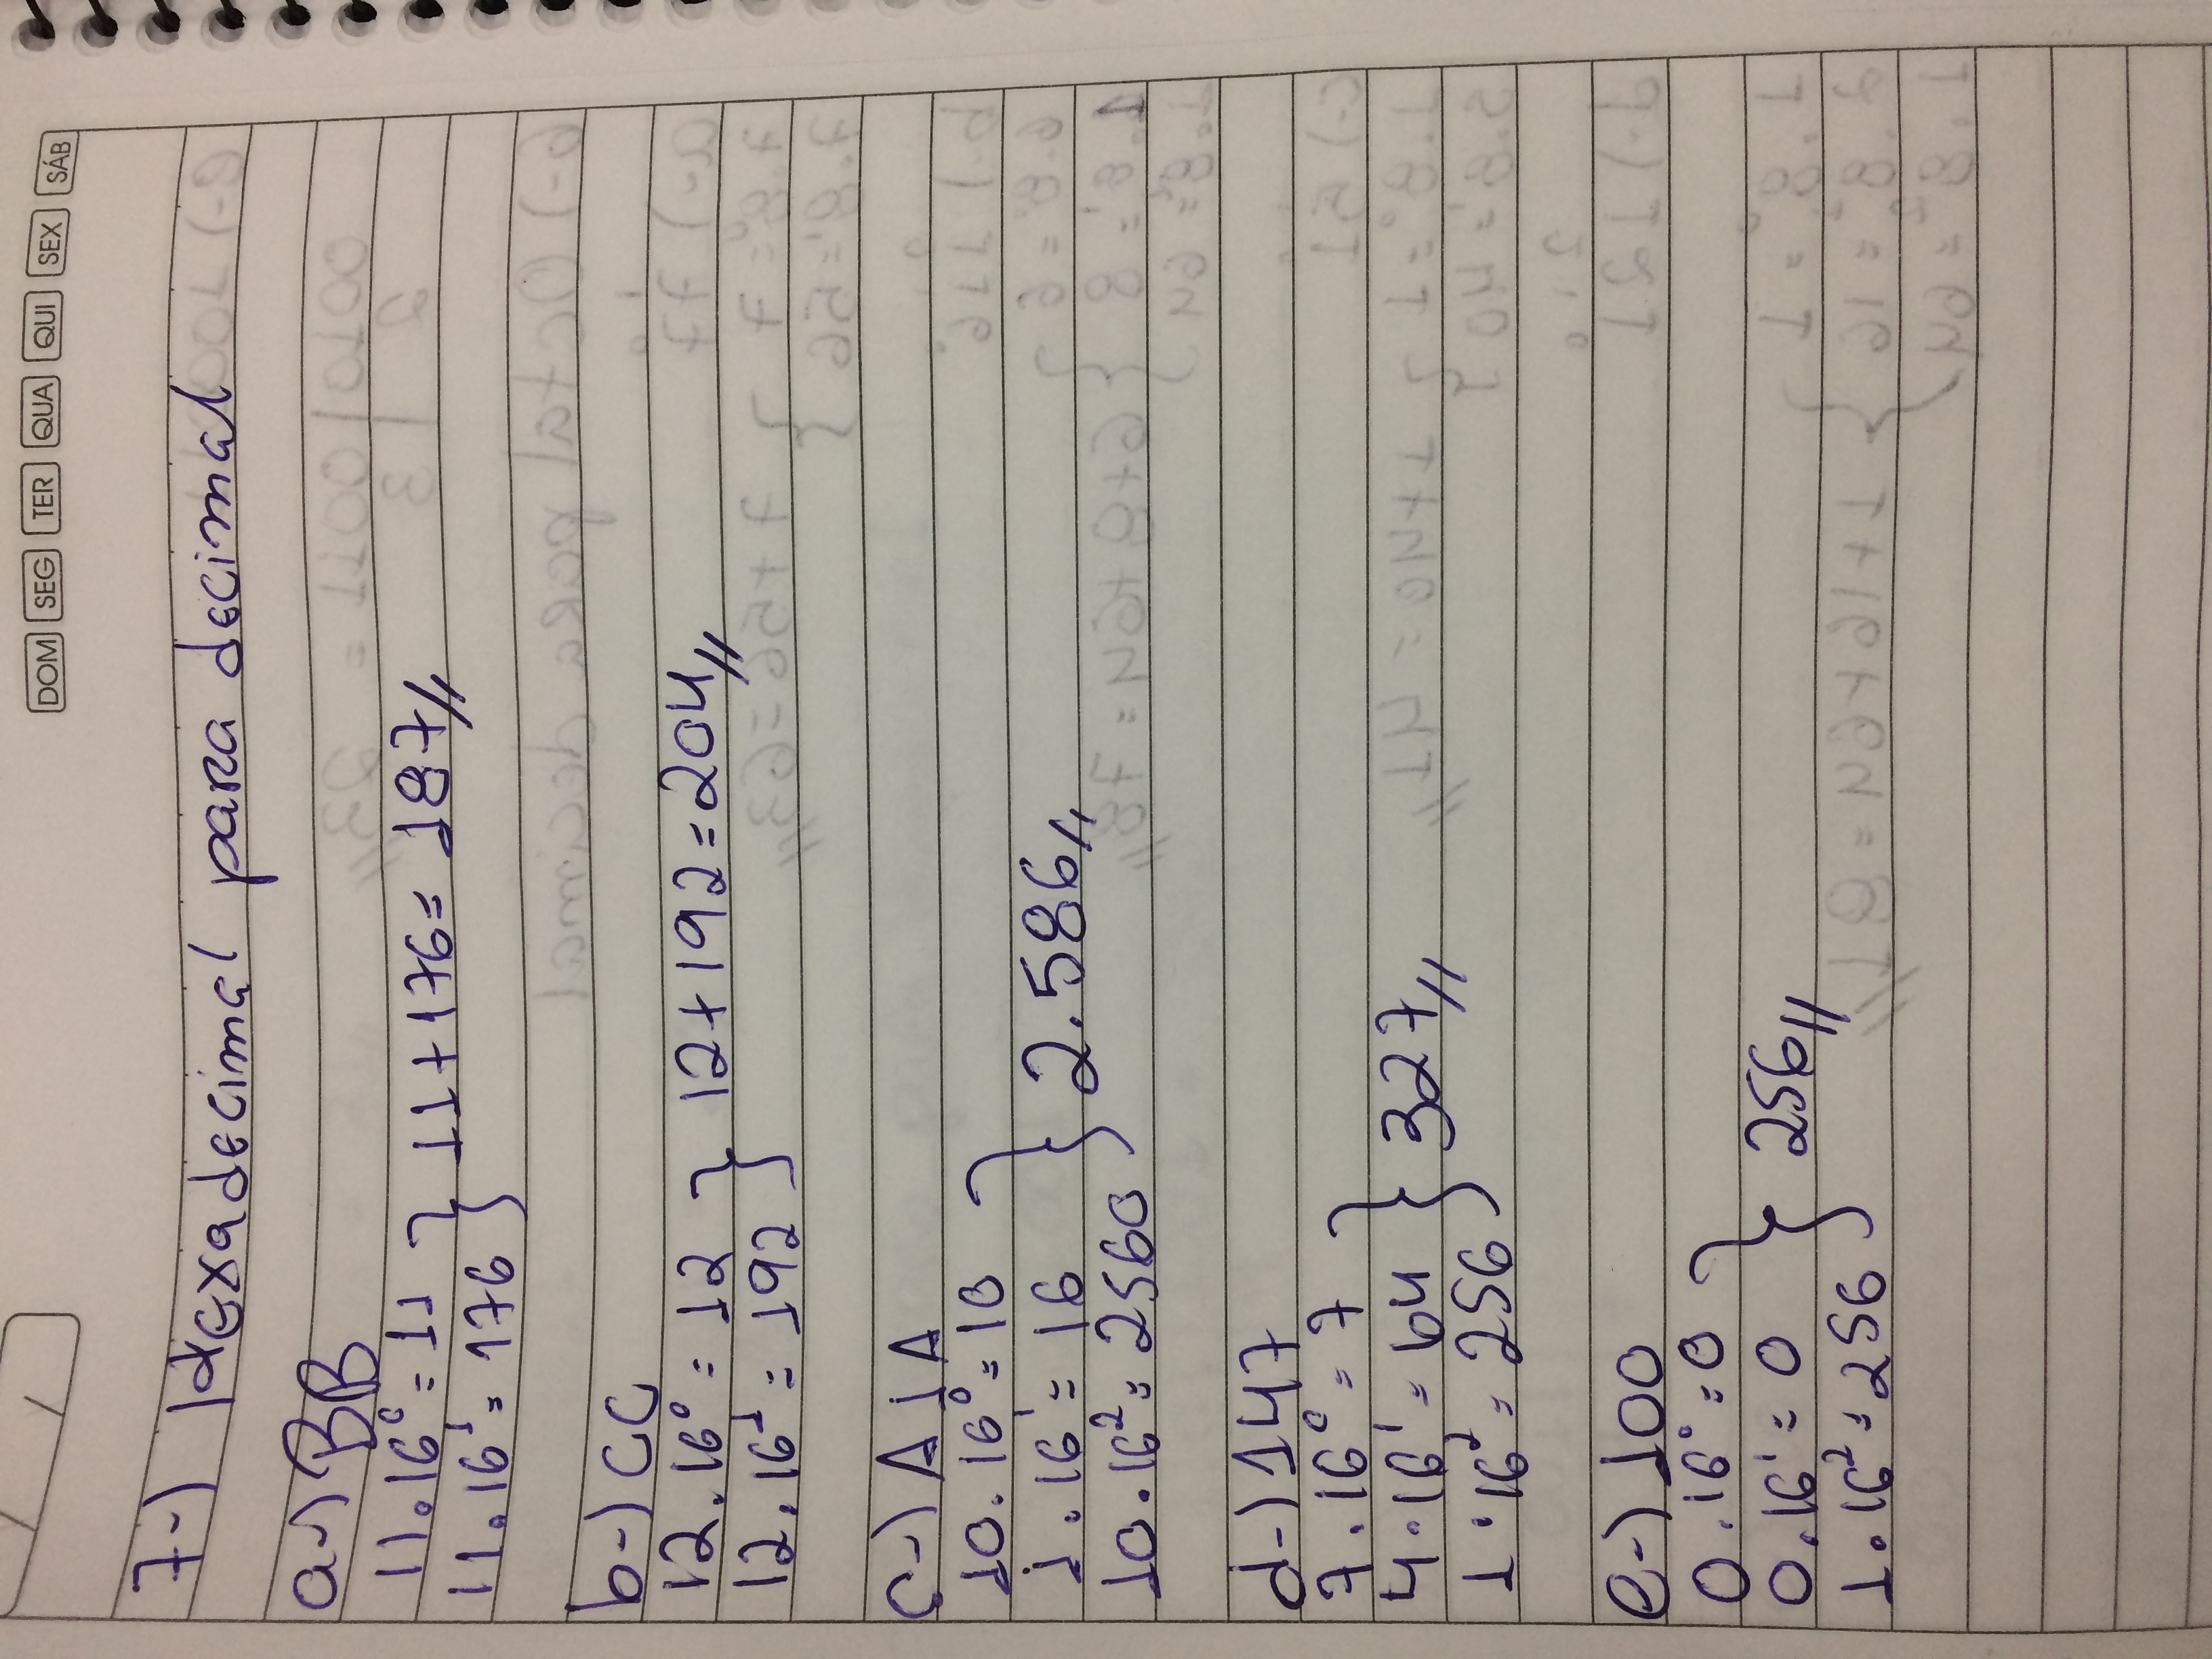 DOM SEG TER QUA QUI SEX SÁB
7-) Hexadecimal para decimal
a-) BB
11.16⁰ = 11
11.16¹ = 176 } 11+176 = 187//
b-) CC
12.16⁰ = 12
12.16¹ = 192 } 12+192 = 204//
c-) A1A
10.16⁰ = 10
1.16¹ = 16 } 2.586//
10.16² = 2560
d-) 147
7.16⁰ = 7
4.16¹ = 64 } 327//
1.16² = 256
e-) 100
0.16⁰ = 0
0.16¹ = 0 } 256//
1.16² = 256